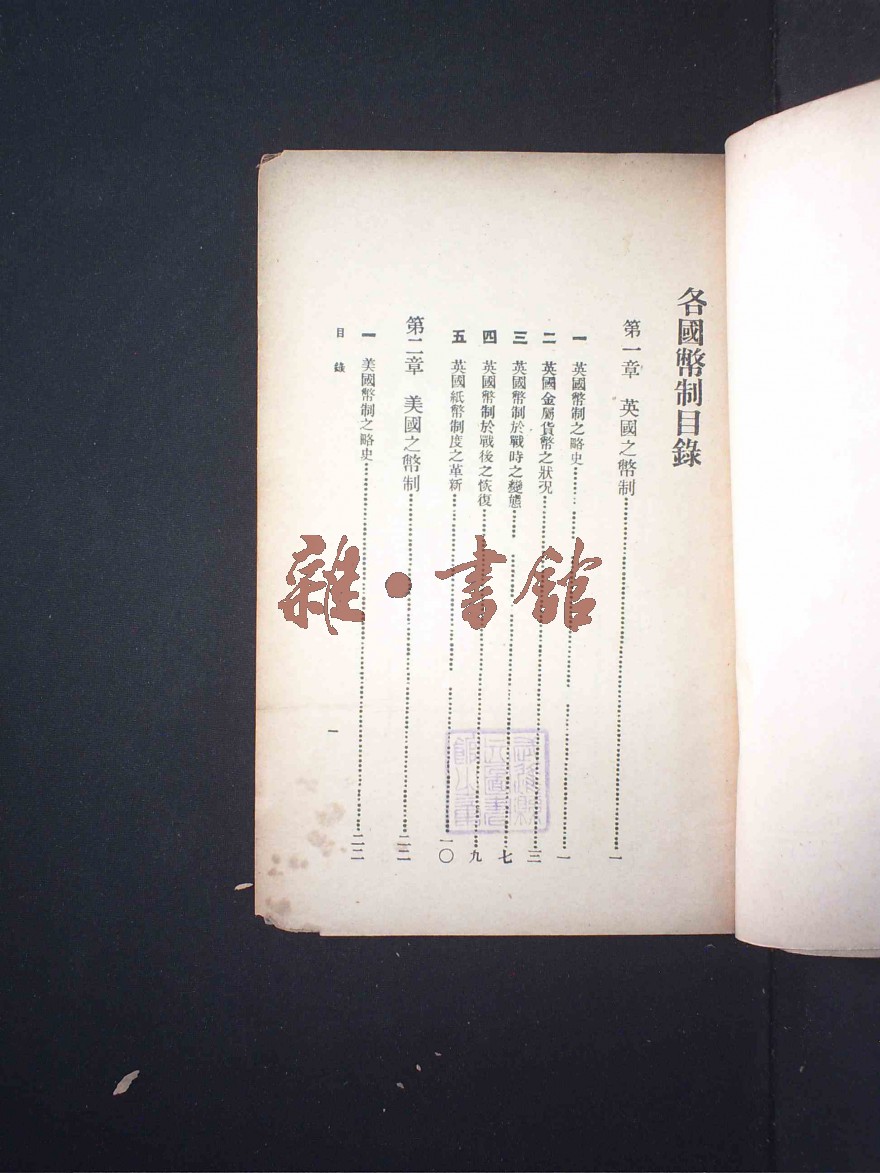 各國幣制目錄
第一章 英國之幣制⋯⋯一
一 英國幣制之略史⋯⋯一
二 英國金屬貨幣之狀況⋯⋯三
三 英國幣制於戰時之變態⋯⋯七
四 英國幣制於戰後之恢復⋯⋯九
五 英國紙幣制度之革新⋯⋯一〇
第二章 美國之幣制⋯⋯二二
一 美國幣制之略史⋯⋯二二
目錄
一
雜·書館